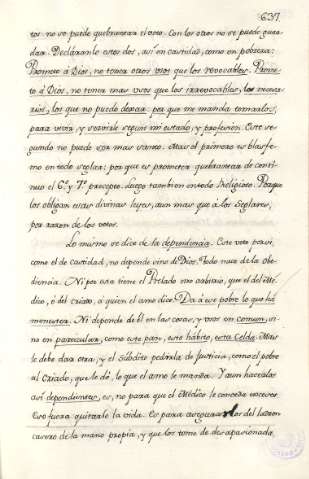 637.
tos no se puede quebrantar el otro. Con los otros no se puede guar
dar. Declaranlo estos dos, asi en castidad, como en pobreza:
Prometo à Dios, no tener otros usos que los revocables. Prome
to à Dios, no tener mas usos que los irrevocables, los necesa
rios, los que no puedo dexar: por que me manda tomarlos,
para vivir, y servirle segun mi estado, y profesion. Este se
gundo no puede ser mas santo. Mas el primero es blasfe
mo en todo seglar: por que es prometer quebrantar de conti
nuo el 6º. y 7º. precepto. Luego tambien en todo Religioso. Porque
los obligan estas divinas leyes, aun mas que à los Seglares,
por razon de los votos.
Lo mismo se dice de la dependencia. Este voto por si,
como el de castidad, no depende sino de Dios. Todo nace de la obe
diencia. Ni por esta tiene el Prelado mas arbitrio, que el del Me
dico, ò del Criado, à quien el amo dice: Da à ese pobre lo que há
menester. Ni depende de él en las cosas, y usos en comun, si
no en particular, como este pan, este hábito, esta Celda. Mas
le debe dar otra, y el Súbdito pedirla de Justicia, como el pobre
al Criado, que le dé, lo que el amo le manda. Y aun hacerlas
asi dependientes, es, no para que el Médico le conceda excesos:
Eso fuera quitarle la vida. Es para asegurarlos del ladron
casero de la mano propia, y que los tome desapasionada